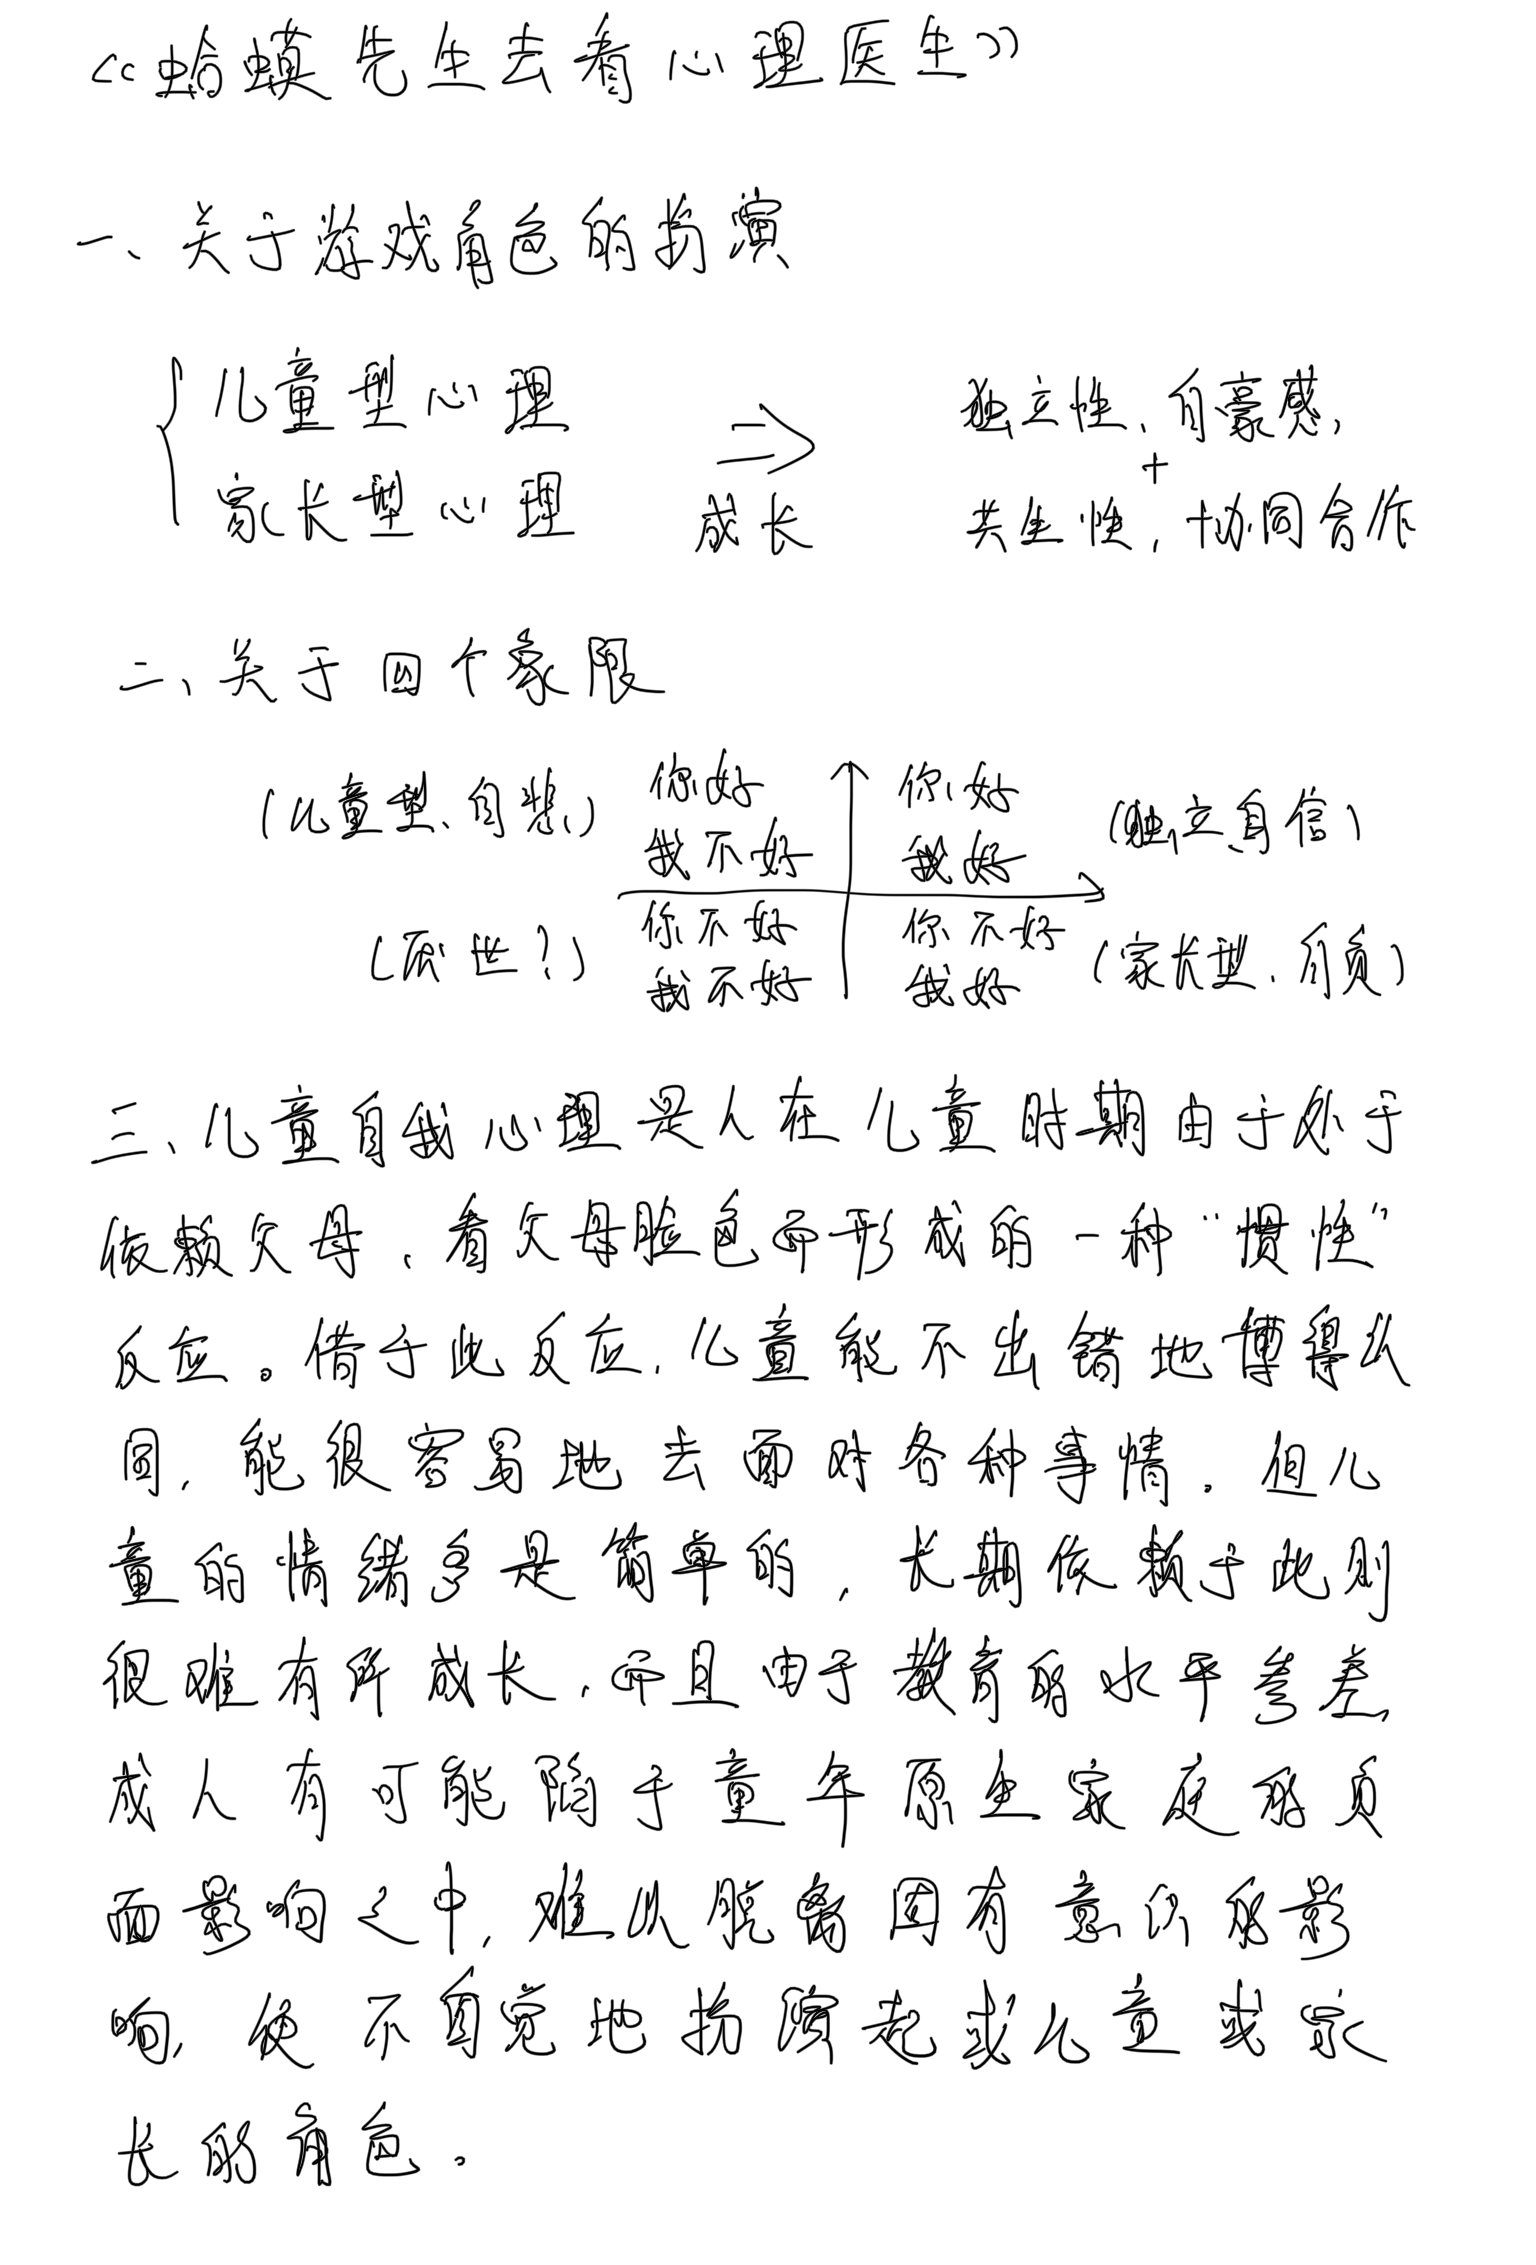 《蛤蟆先生去看心理医生》
一、关于游戏角色的扮演
儿童型心理
家长型心理
⇒
成长
独立性、自豪感,
+
共生性,协同合作
二、关于四个象限
(儿童型、自悲) 你好 你好 (独立自信)
我不好 我好
(厌世?) 你不好 你不好 (家长型、自负)
我不好 我好
三、儿童自我心理是人在儿童时期由于处于
依赖父母、看父母脸色而形成的一种“惯性”
反应。借于此反应,儿童能不出错地博得认
同,能很容易地去面对各种事情。但儿
童的情绪多是简单的,长期依赖于此则
很难有所成长,而且由于教育的水平参差,
成人有可能陷于童年原生家庭的负
面影响之中,难以脱离固有意识的影
响,便不自觉地扮演起或儿童或家
长的角色。